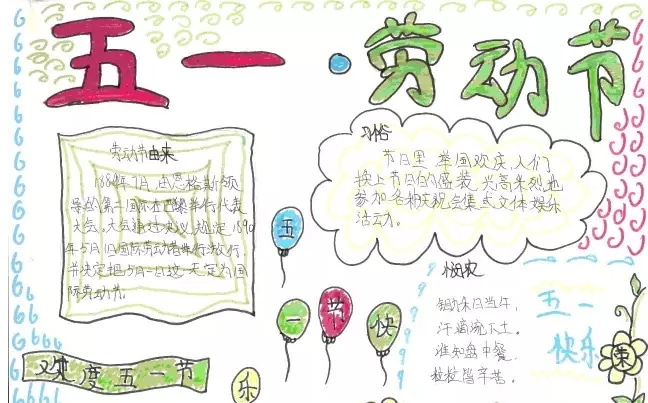 五一·劳动节
劳动节由来
1889年7月,由恩格斯领
导的第二国际在巴黎举行代表
大会。大会通过决议,规定1890
年5月1日国际劳动者举行游行,
并决定把5月一日这一天定为国
际劳动节。
习俗
节日里,举国欢庆,人们
换上节日的盛装,兴高采烈地
参加各种庆祝会集式文体娱乐
活动。
五
一
节
快
乐
悯农
锄禾日当午,
汗滴禾下土。
谁知盘中餐,
粒粒皆辛苦。
五一
快乐
荣
欢度五一节